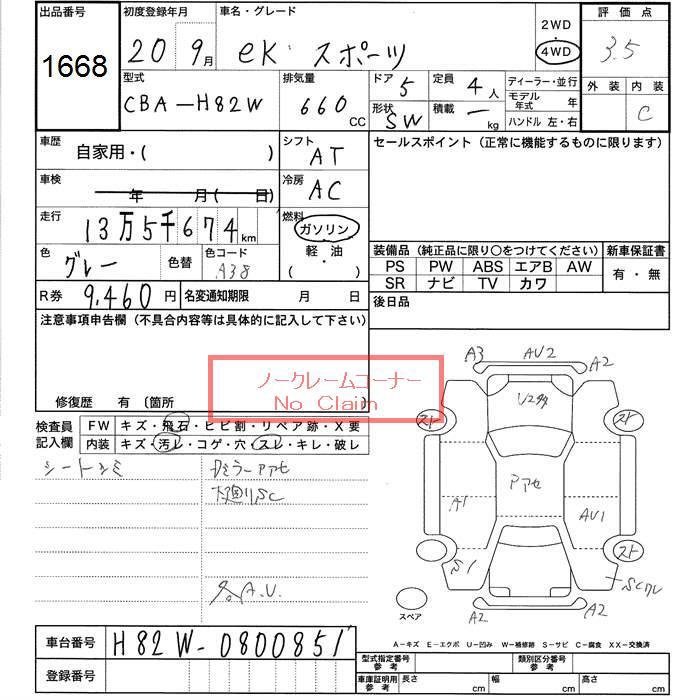 出品番号
1668
初度登録年月
20 9月
車名・グレード
eK スポーツ
2WD
4WD
評価点
3.5
外装 内装
C
型式
CBA-H82W
排気量
660 CC
ドア 5
形状 SW
定員 4人
積載 ー kg
ディーラー・並行
モデル年式 年
ハンドル 左・右
車歴
自家用・( )
シフト
AT
セールスポイント (正常に機能するものに限ります)
車検
年 月( 日)
冷房
AC
走行
13万5千674km
燃料
ガソリン
軽・油
( )
色
グレー
色替
色コード
A38
装備品 (純正品に限り○をつけてください)
新車保証書
PS PW ABS エアB AW
SR ナビ TV カワ
有・無
R券 9,460円
名変通知期限 月 日
後日品
注意事項申告欄 (不具合内容等は具体的に記入して下さい)
ノークレームコーナー
No Claim
修復歴 有 〔箇所
検査員記入欄
FW キズ・飛石・ヒビ割・リペア跡・X要
内装 キズ・汚レ・コゲ・穴・スレ・キレ・破レ
シートシミ
下廻りSC
各A.U.
A3 AU2 A2
スト
スト
アアセ
A1
AU1
S1
スト
SCワレ
A2 A2
スペア
車台番号 H82W-0800851
登録番号
A-キズ E-エクボ U-凹み W-補修跡 S-サビ C-腐食 XX-交換済
型式指定番号参考
類別区分番号参考
車庫証明用参考 長さ cm 幅 cm 高さ cm